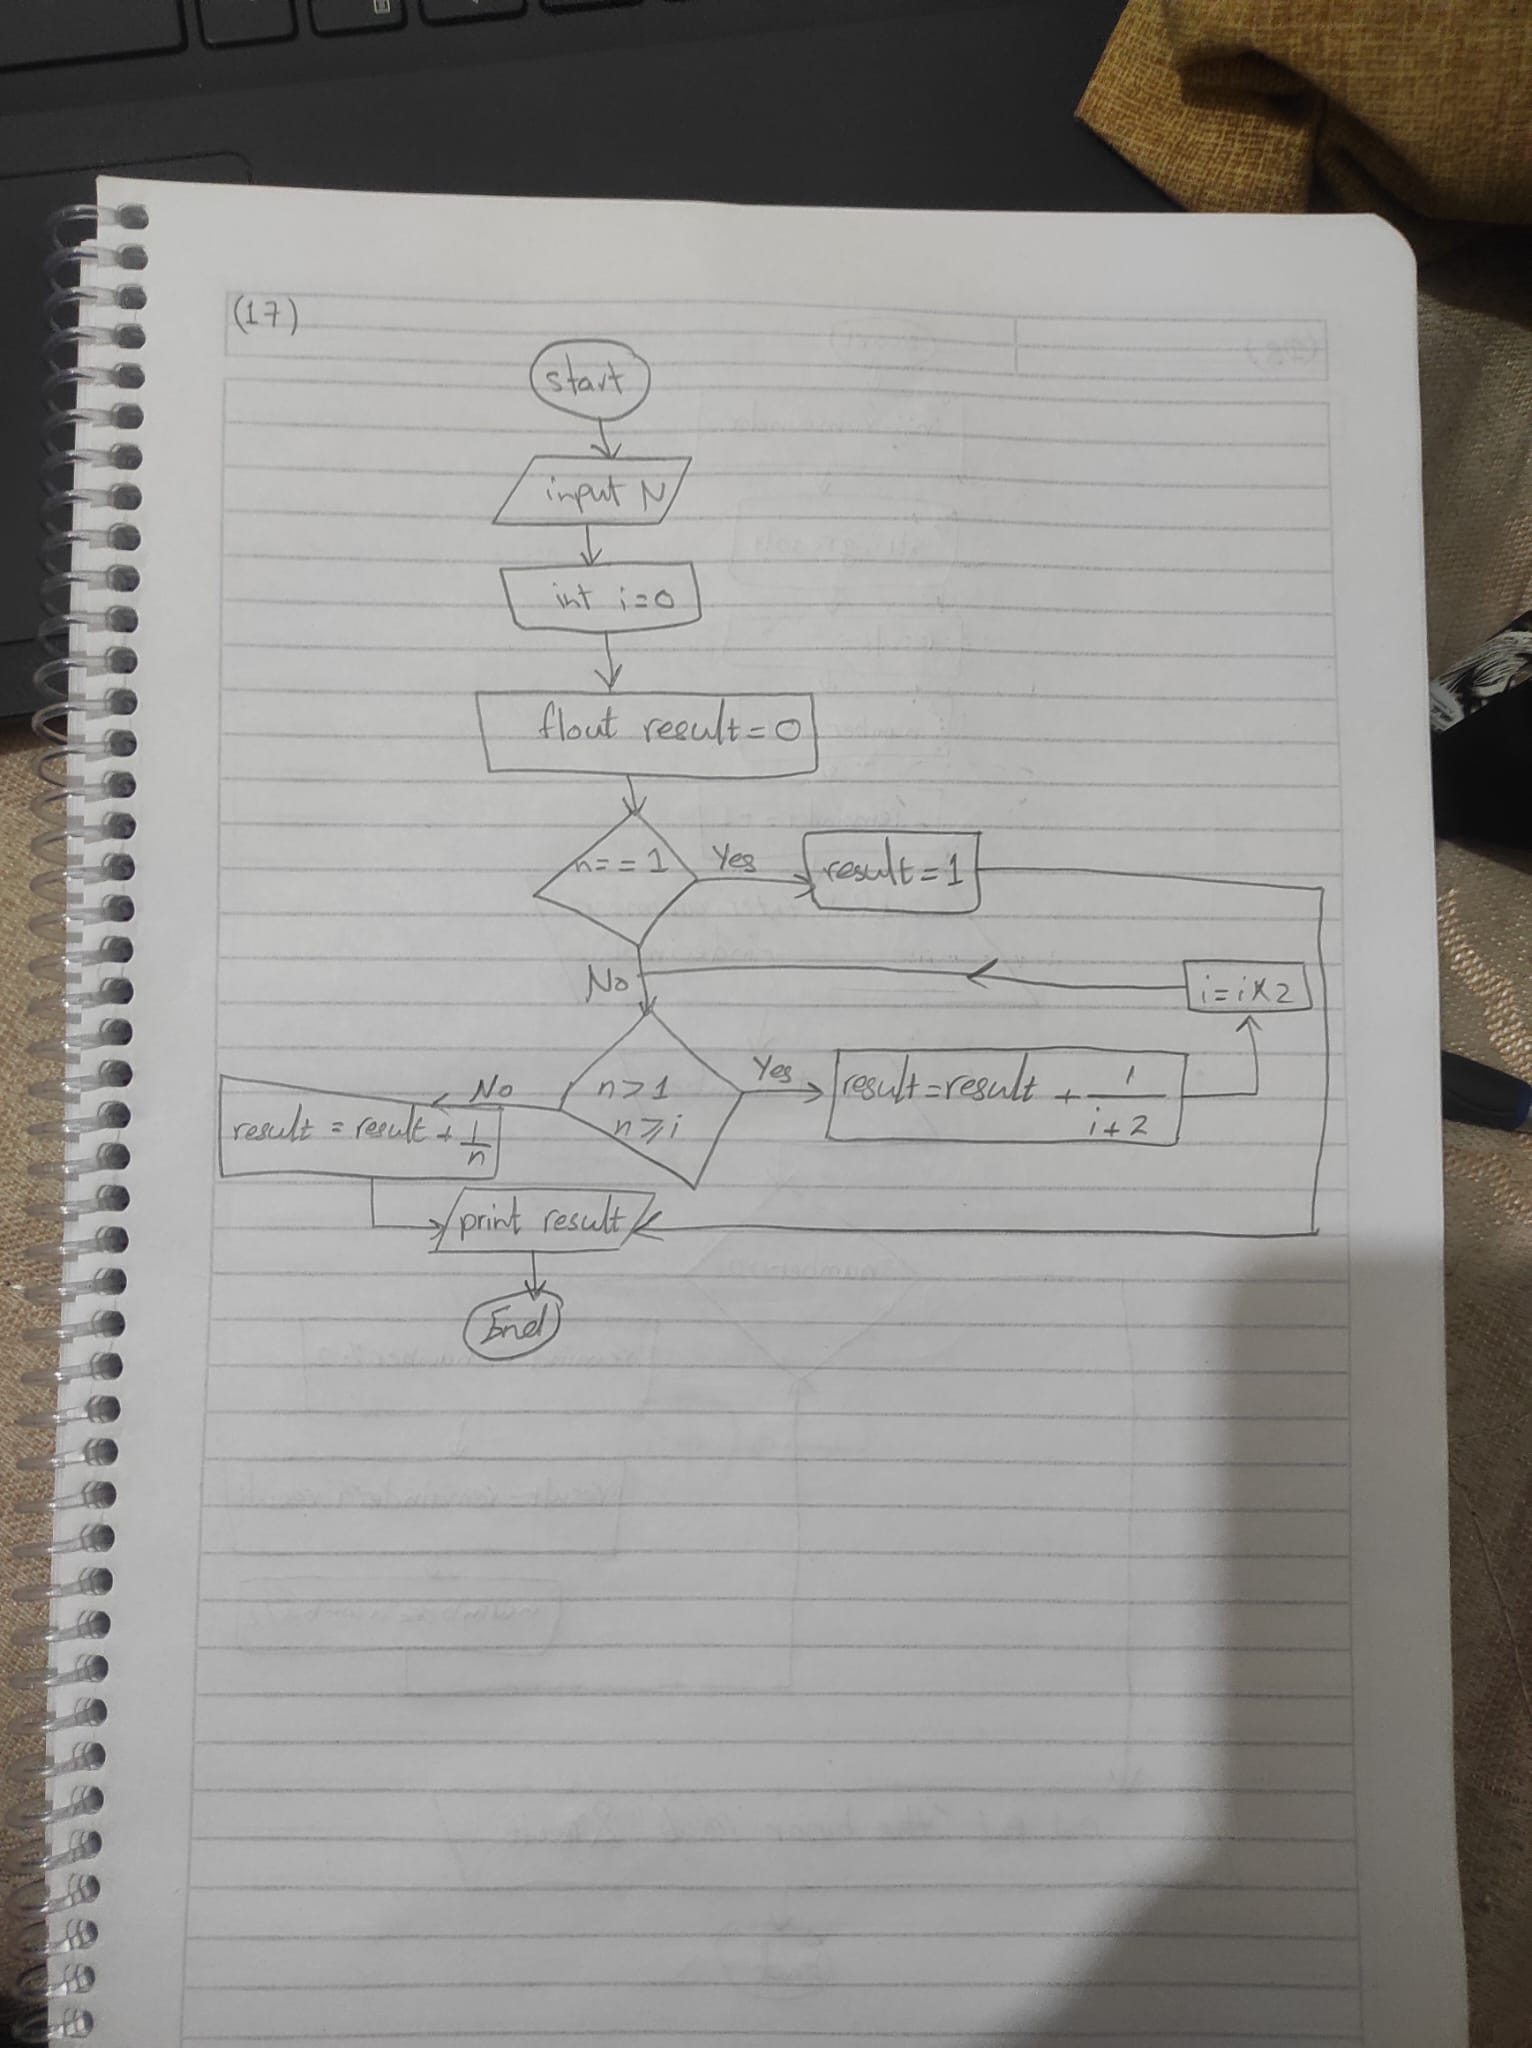 (17)
start
input N
int i=0
flout result=0
n==1
Yes
result=1
No
i=i*2
n>1
n≥i
Yes
result=result + 1/i+2
No
result=result+1/n
print result
End